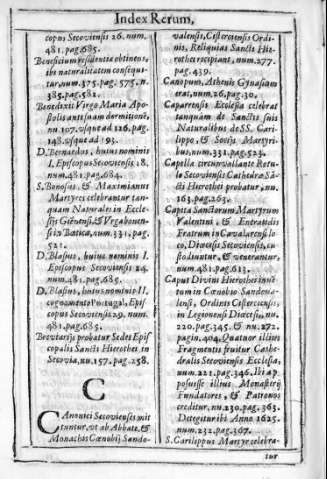 Index Rerum,
copus Secoviensis 26. num.
481. pag. 685.
Beneficium residentia obtinens,
ibi naturalitatem consequi-
tur, num. 375. pag. 575. n.
385. pag. 581.
Benedixit Virgo Maria Apo-
stolis antequam dormitione,
nu. 107. vsque ad 126. pag.
148. vsque ad 193.
D. Bernardus, huius nominis
I. Episcopus Secoviensis 18.
num. 481. pag. 684.
S. Bonosus, & Maximianus
Martyres celebrantur tan-
quam Naturales in Eccle-
sijs Gienensi, & Vrgabonen-
si in Batica, num. 331. pag.
521.
D. Blasius, huius nominis I.
Episcopus Secoviensis 24.
num. 481. pag. 685.
D. Blasius, huius nominis II.
cognomento Portugal, Epis-
copus Secoviensis 29. num.
481. pag. 685.
Breviarijs probatur Sedes Epis-
copalis Sancti Hierothei in
Secovia, nu. 157. pag. 258.
C
CAnonici Secovienses mit-
tuntur, vt ab Abbate, &
Monachis Cœnobij Sando-
valensis, Cisterciensis Ordi-
nis, Reliquias Sancti Hie-
rothei recipiant, num. 277.
pag. 439.
Canopum, Athenis Gynasium
erat, num. 26. pag. 30.
Caparrensis Ecclesia celebrat
tanquam de Sanctis suis
Naturalibus de SS. Cari-
lippo, & Socijs Martyri-
bus, num. 331. pag. 523.
Capella circunvallante Retu-
lo Secoviensis Cathedra Sã-
cti Hierothei probatur, nu.
163. pag. 263.
Capita Sanctorum Martyrum
Valentini, & Engratidis
Fratrum in Cavalarensi lo-
co, Diœcesis Secoviensis, cu-
stodiuntur, & venerantur,
num. 481. pag. 613.
Caput Divini Hierothei inuẽ-
tum in Cœnobio Sandova-
lensi, Ordinis Cisterciensis,
in Legionensi Diœcesi, nu.
220. pag. 345. & nu. 272.
pagin. 404. Quatuor illius
Fragmentis fruitur Cathe-
dralis Secoviensis Ecclesia,
num. 221. pag. 346. Ibi ap-
posuisse illius Monasterij
Fundatores, & Patronos
creditur, nu. 230. pag. 363.
Detegitur ibi Anno 1625.
num. 232. pag. 367.
S. Carilippus Martyr celebra-
tur